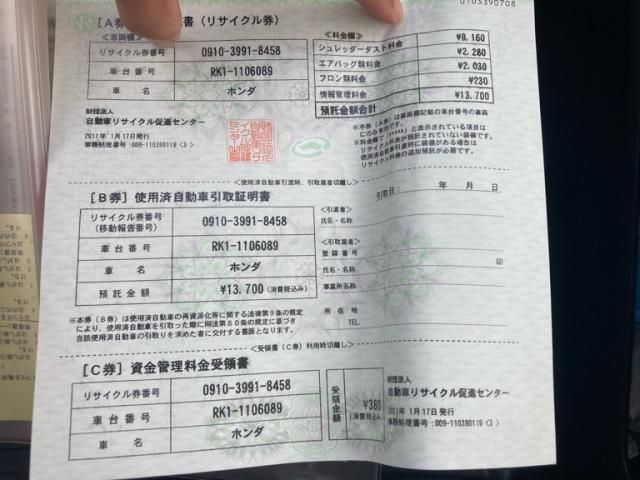 0103390708
[A券] 書(リサイクル券)
<車両欄>
リサイクル券番号 0910-3991-8458
車台番号 RK1-1106089
車名 ホンダ
<料金欄>
シュレッダーダスト料金 ¥9,160
エアバッグ類料金 ¥2,280
フロン類料金 ¥2,030
情報管理料金 ¥230
預託金額合計 ¥13,700
財団法人
自動車リサイクル促進センター
2011年 1月17日発行
事務処理番号:009-110390119〈3〉
※本券(A券)は車両欄記載の車台番号の車両
にのみ有効です。
と表示されている項目は
リサイクル料金が預託されていない装備です。
使用済自動車引渡時に装備がある場合は
リサイクル料金の追加預託が必要です。
<使用済自動車引渡時、引取業者切離し>
[B券] 使用済自動車引取証明書
リサイクル券番号 0910-3991-8458
(移動報告番号)
車台番号 RK1-1106089
車名 ホンダ
預託金額 ¥13,700 (消費税込み)
※本券(B券)は使用済自動車の再資源化等に関する法律第9条の規定
により、使用済自動車を引取った際に同法第80条の規定に基づき
当該使用済自動車の引取りを求めた者に交付する書面となります。
引取日: 年 月 日
<引渡者>
氏名・名称
<引取業者>
登録番号
氏名・名称 印
事業所名称
所在地
TEL
<受領書(C券)利用時切離し>
[C券] 資金管理料金受領書
リサイクル券番号 0910-3991-8458
車台番号 RK1-1106089
車名 ホンダ
受領金額 ¥380 (消費税込み)
財団法人
自動車リサイクル促進センター
2011年 1月17日発行
事務処理番号:009-110390119〈3〉